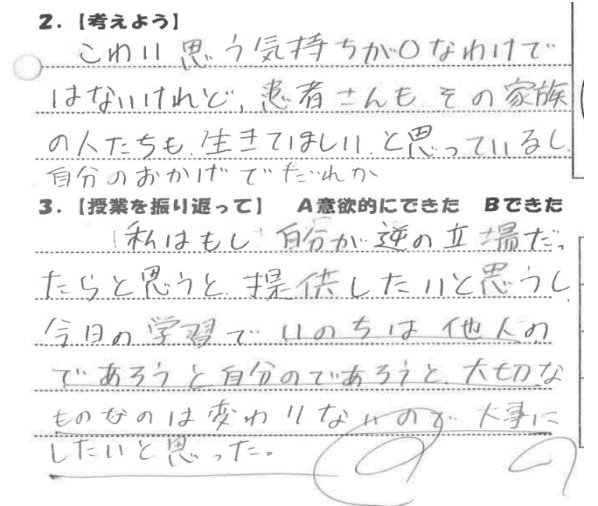 2.【考えよう】
こわいと思う気持ちが0なわけで
はないけれど、患者さんも、その家族
の人たちも、生きてほしい、と思っているし、
自分のおかげでだれか
3.【授業を振り返って】 A意欲的にできた Bできた
私はもし自分が逆の立場だっ
たらと思うと、提供したいと思うし
今日の学習でいのちは他人の
であろうと自分のであろうと、大切な
ものなのは変わりないので大事に
したいと思った。